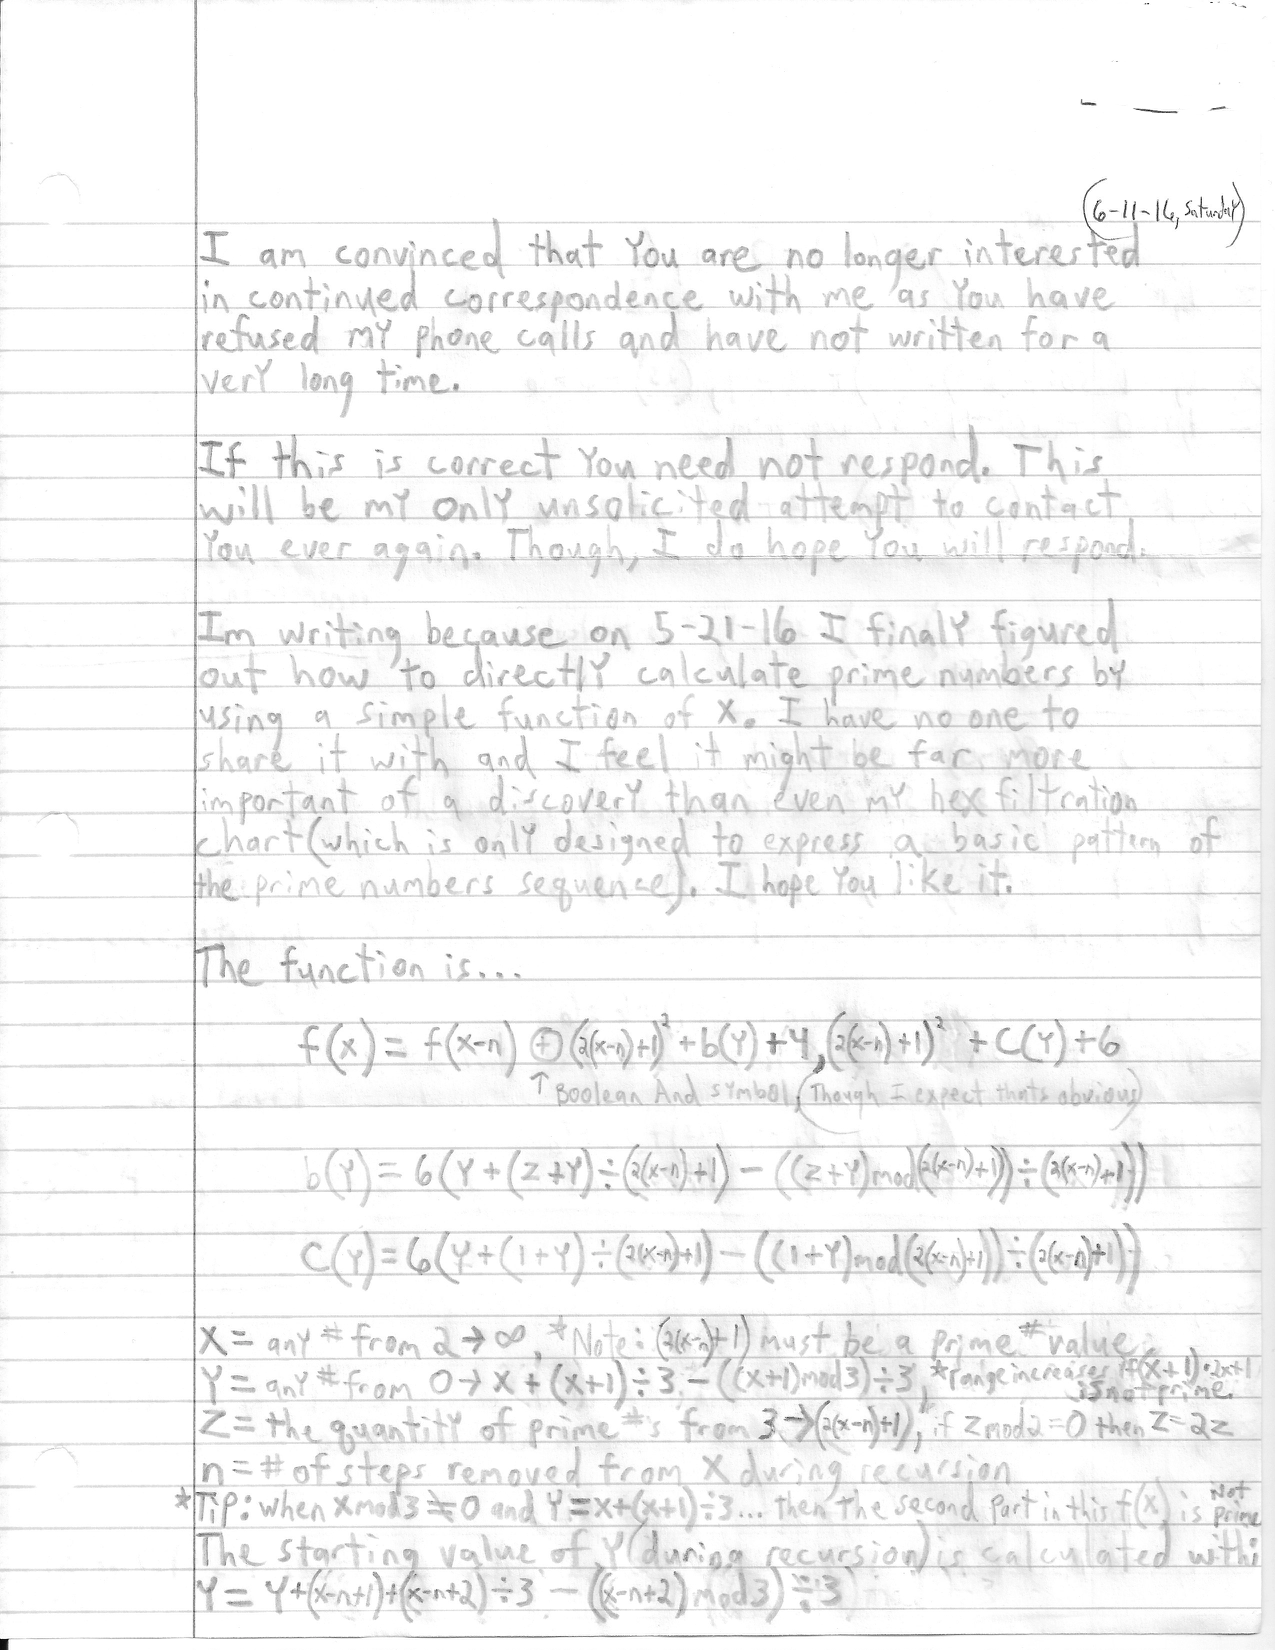 (6-11-16, Saturday)
I am convinced that You are no longer interested
in continued correspondence with me as You have
refused my phone calls and have not written for a
very long time.
If this is correct You need not respond. This
will be my only unsolicited attempt to contact
You ever again. Though, I do hope You will respond.
Im writing because on 5-21-16 I finaly figured
out how to directly calculate prime numbers by
using a simple function of X. I have no one to
share it with and I feel it might be far more
important of a discovery than even my hex filtration
chart (which is only designed to express a basic pattern of
the prime numbers sequence). I hope You like it.
The function is...
f(x) = f(x-n) ⊕ (2(x-n)+1)² + b(Y) + 4, (2(x-n)+1)² + C(Y) + 6
↑ Boolean And symbol, (Though I expect thats obvious)
b(Y) = 6(Y + (Z+Y) ÷ (2(x-n)+1) - ((Z+Y) mod (2(x-n)+1)) ÷ (2(x-n)+1))
C(Y) = 6(Y + (1+Y) ÷ (2(x-n)+1) - ((1+Y) mod (2(x-n)+1)) ÷ (2(x-n)+1))
X = any # from 2 → ∞, *Note: (2(x-n)+1) must be a prime # value.
Y = any # from 0 → X + (X+1) ÷ 3 - ((X+1) mod 3) ÷ 3, *range increases if (X+1)•2x+1
is not prime.
Z = the quantity of prime #'s from 3 → (2(x-n)+1), if Z mod 2 = 0 then Z = 2Z
n = # of steps removed from X during recursion
*Tip: when X mod 3 ≠ 0 and Y = X + (X+1) ÷ 3... then the second part in this f(x) is Not prime
The starting value of Y (during recursion) is calculated with:
Y = Y + (x-n+1) + (x-n+2) ÷ 3 - ((x-n+2) mod 3) ÷ 3